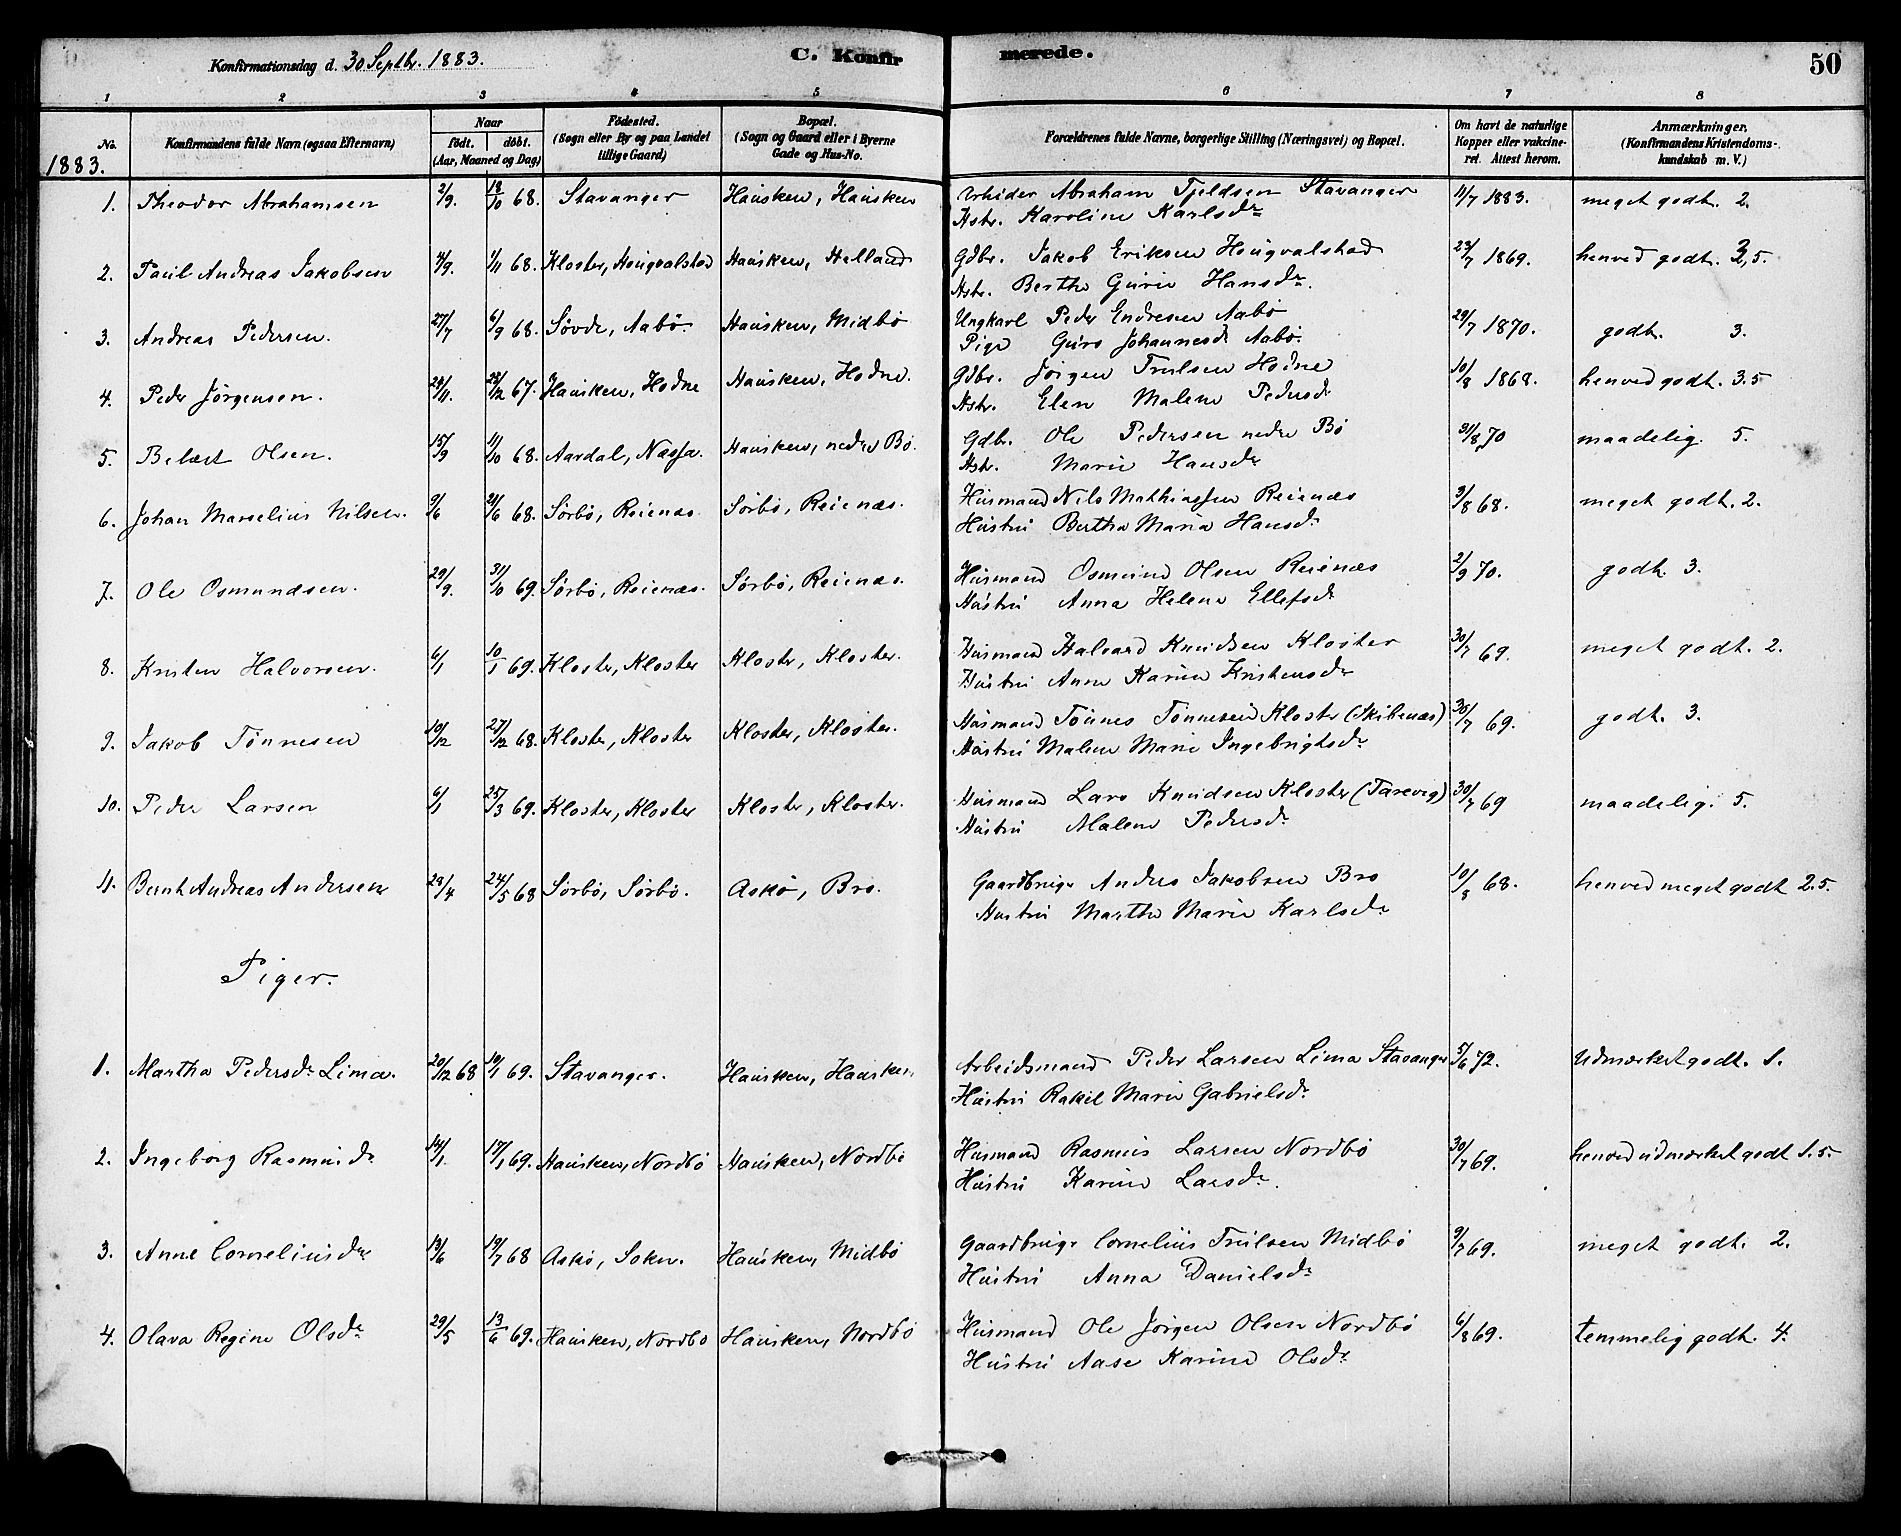 Konfirmationsdag d. 30 Septbr. 1883. C. Konfirmerede. 50
1 2 3 4 5 6 7 8
No. Konfirmandens fulde Navn (ogsaa Efternavn) Naar födt. döbt. (Aar, Maaned og Dag) Födested. (Sogn eller By og paa Landet tillige Gaard) Bopæl. (Sogn og Gaard eller i Byerne Gade og Hus-No. Forældrenes fulde Navne, borgerlige Stilling (Næringsvei) og Bopæl. Om havt de naturlige Kopper eller vakcineret. Attest herom. Anmærkninger. (Konfirmandens Kristendomskundskab m. V.)
1883.
1. Theodor Abrahamsen 2/9. 18/10 68. Stavanger Hausken, Hausken Arbider Abraham Tjeldsen Stavanger 11/7 1883. meget godt. 2.
Hstr. Karoline Karlsdr
2. Paul Andreas Jakobsen 4/9. 1/11 68. Kloster, Hougvalstad Hausken, Helland Gdbr. Jakob Eriksen Hougvalstad 23/7 1869. henved godt. 3,5.
Hstr. Bertha Gurie Hansdr.
3. Andreas Pedersen. 27/7 6/9 68. Søvde, Aabö Hausken, Midbö Ungkarl Peder Endresen Aabö 29/7 1870. godt. 3.
Pige Guro Johannesdr Aabö.
4. Peder Jörgensen. 29/11. 28/12 67. Hausken, Hodne Hausken, Hodne. Gdbr. Jörgen Trulsen Hodne 10/8 1868. henved godt. 3.5
Hstr. Elen Malene Pedersdr
5. Belæst Olsen. 15/9 11/10 68. Aardal, Næssa. Hausken, nedre Bö. Gdbr. Ole Pedersen nedre Bö 31/8 70 maadelig. 5.
Hstr. Marie Hansdr
6. Johan Marselius Nilsen. 9/6 21/6 68. Sörbö, Reienæs. Sörbö, Reienæs. Husmand Nils Mathiassen Reienæs 3/8 68. meget godt. 2.
Hustru Bertha Maria Hansdr
7. Ole Osmundsen. 29/9. 31/10 69. Sörbö, Reienæs. Sörbö, Reienæs. Husmand Osmund Olsen Reienæs 2/9 70. godt. 3.
Hustru Anna Helene Ellefsdr
8. Kristen Halvorsen. 6/1 10/1 69. Kloster, Kloster Kloster, Kloster. Husmand Halvard Knudsen Kloster 30/7 69. meget godt. 2.
Hustru Anne Karine Kristensdr
9. Jakob Tönnesen 19/12 27/12 68. Kloster, Kloster Kloster, Kloster. Husmand Tönnes Tönnesen Kloster (Skibenæs) 30/7 69. godt. 3.
Hustru Malene Marie Ingebrigtsdr
10. Peder Larsen 6/1 25/3 69. Kloster, Kloster Kloster, Kloster. Husmand Lars Knudsen Kloster (Tarevig) 30/7 69 maadelig. 5.
Hustru Malene Pedersdr
11. Bernt Andreas Andersen 29/4 24/5 68 Sörbö, Sörbö. Askö, Bro. Gaardbruger Anders Jakobsen Bro 10/8 68. henved meget godt 2.5.
Hustru Martha Marie Karlsdr
Piger.
1. Martha Pedersdr Lima. 20/12 68 10/1 69. Stavanger. Hausken, Hausken Arbeidsmand Peder Larsen Lima Stavanger 5/6 72. Udmærket godt. 1.
Hustru Rakel Marie Gabrielsdr
2. Ingeborg Rasmusdr 14/1. 17/1 69. Hausken, Nordbö Hausken, Nordbö Husmand Rasmus Larsen Nordbö 30/7 69. henved udmærket godt 1.5.
Hustru Karine Larsdr.
3. Anne Corneliusdr 13/6 19/7 68 Askö, Soken. Hausken, Midbö Gaardbruger Cornelius Trulsen Midbö 9/7 69. meget godt. 2.
Hustru Anna Danielsdr
4. Olava Regine Olsdr 29/5 13/6 69. Hausken, Nordbö Hausken, Nordbö Husmand Ole Jörgen Olsen Nordbö 6/8 69. temmelig godt. 4.
Hustru Aase Karine Olsdr